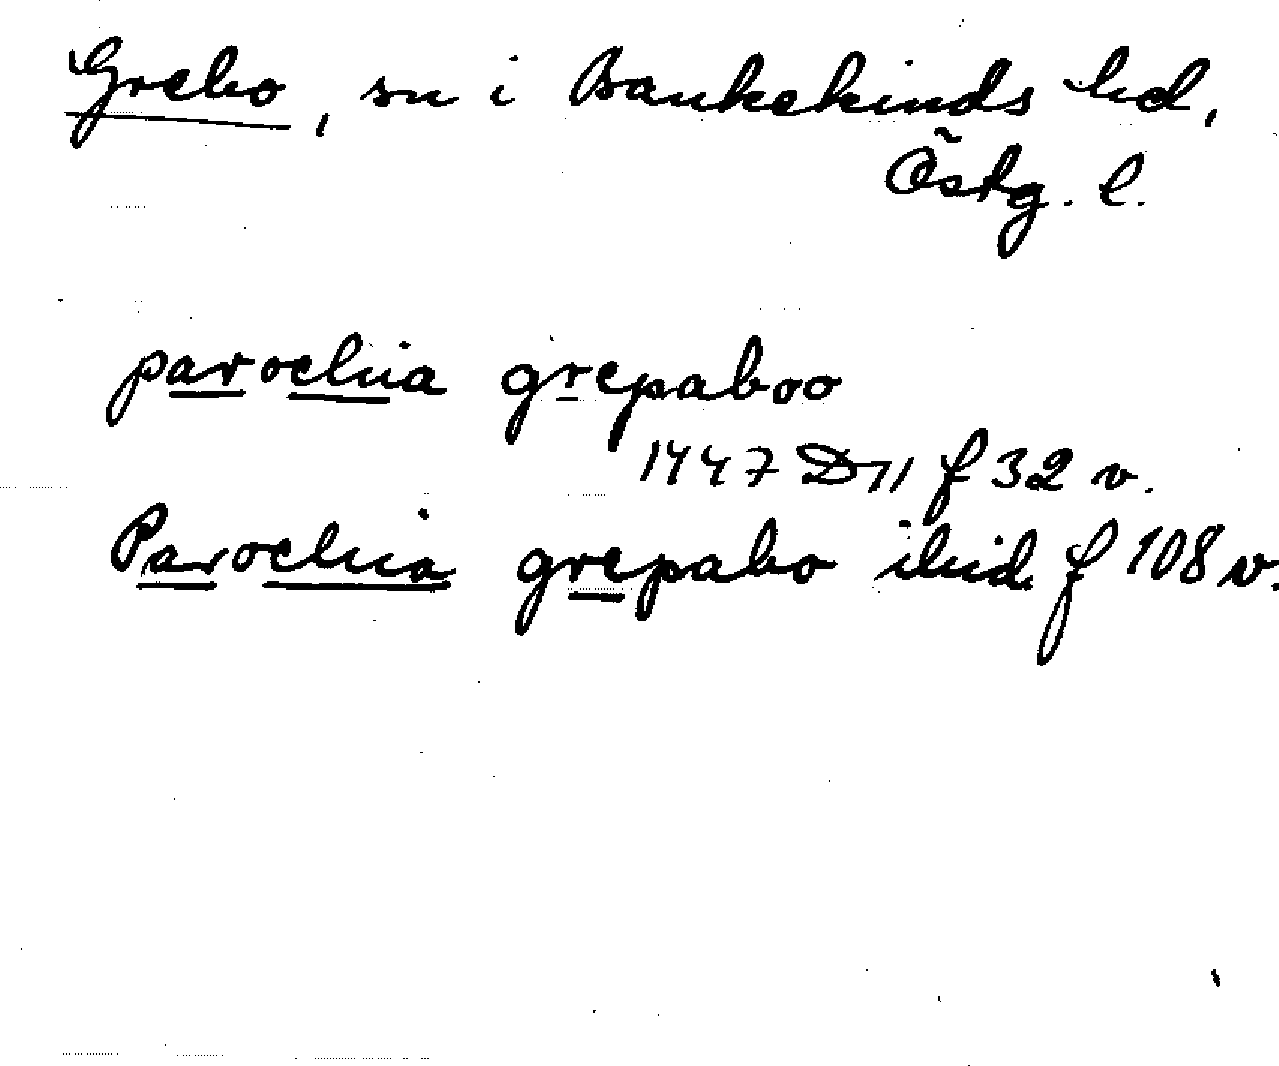 Grebo, sn i Bankekinds hd,
Östg. l.
parochia grepaboo
1447 D 11 f 32 v.
Parochia grepabo ibid. f 108 v.